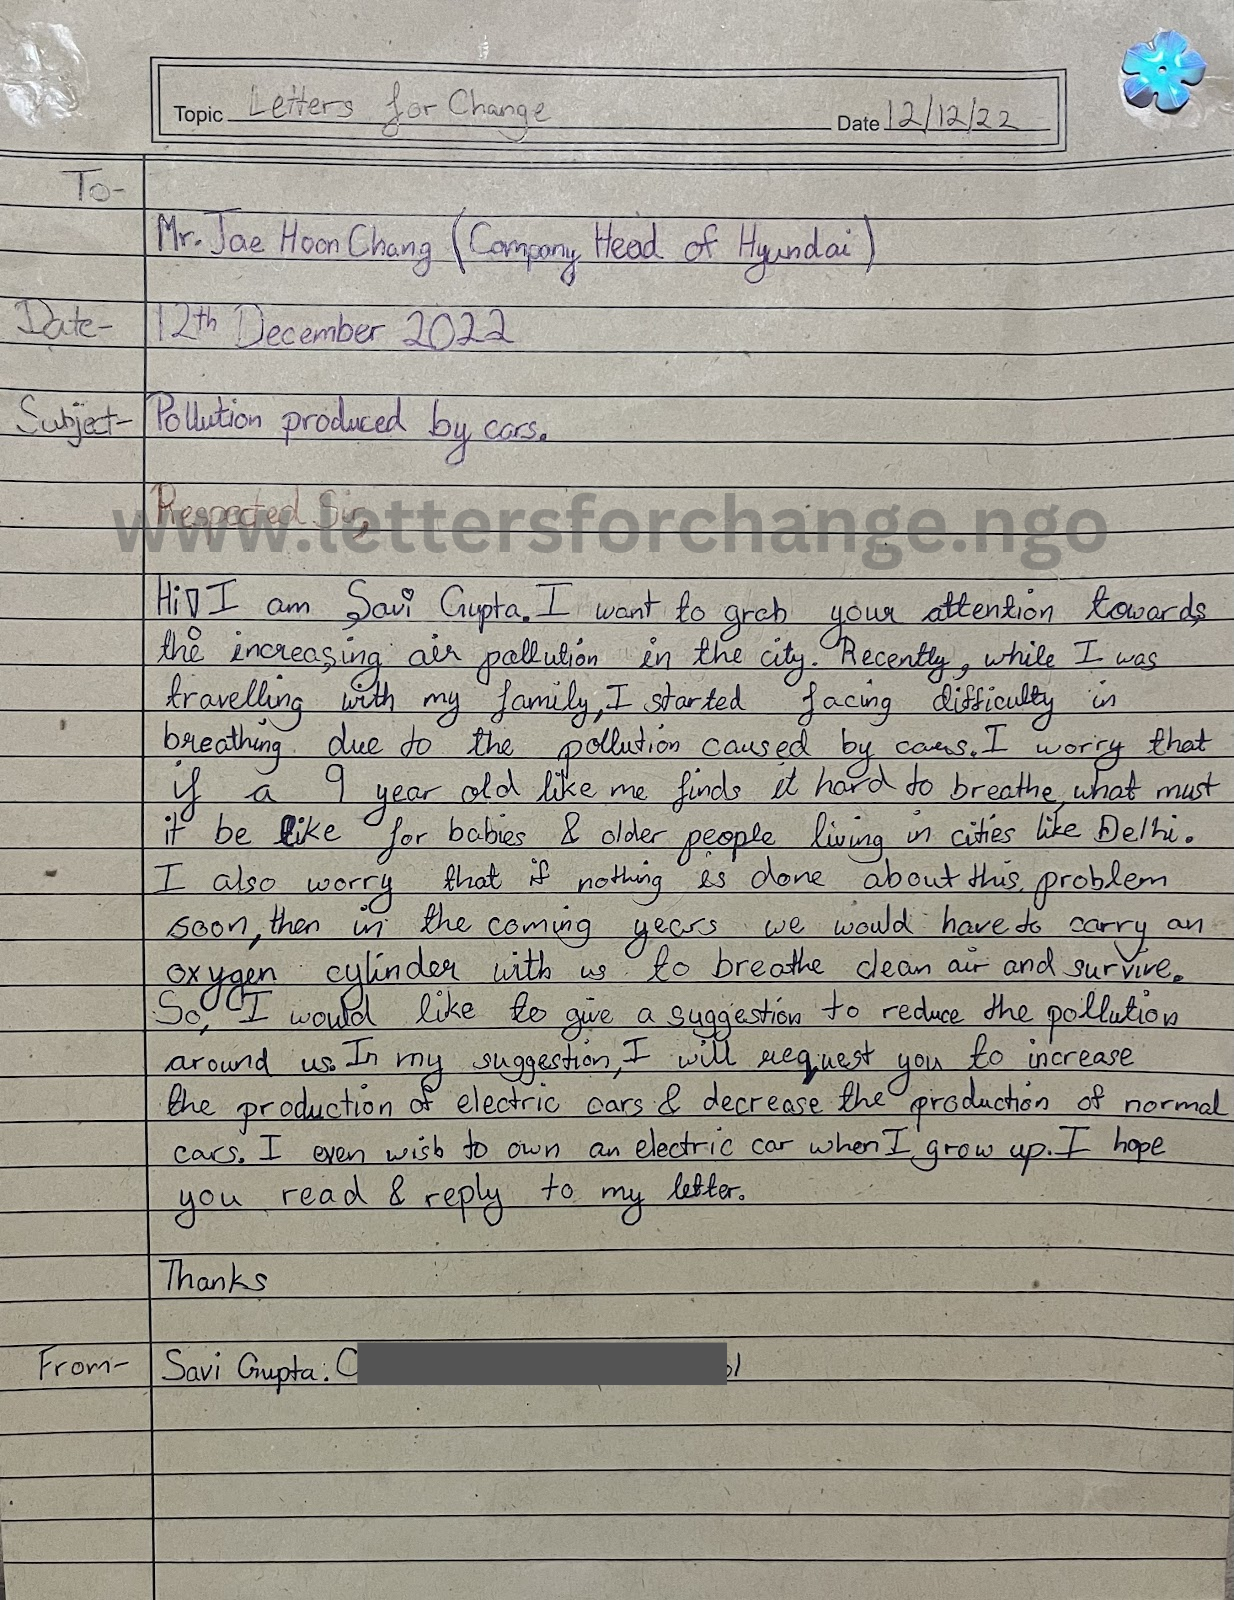 Topic Letters for Change Date 12/12/22
To-
Mr. Jae Hoon Chang (Company Head of Hyundai)
Date- 12th December 2022
Subject- Pollution produced by cars.
Respected Sir,
www.lettersforchange.ngo
Hi! I am Savi Gupta. I want to grab your attention towards
the increasing air pollution in the city. Recently, while I was
travelling with my family, I started facing difficulty in
breathing due to the pollution caused by cars. I worry that
if a 9 year old like me finds it hard to breathe, what must
it be like for babies & older people living in cities like Delhi.
I also worry that if nothing is done about this problem
soon, then in the coming years we would have to carry an
oxygen cylinder with us to breathe clean air and survive.
So, I would like to give a suggestion to reduce the pollution
around us. In my suggestion, I will request you to increase
the production of electric cars & decrease the production of normal
cars. I even wish to own an electric car when I grow up. I hope
you read & reply to my letter.
Thanks
From- Savi Gupta.